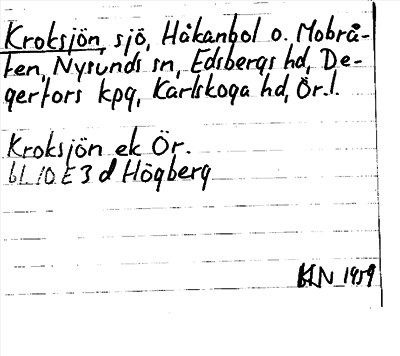 Kroksjön, sjö, Håkanbol o. Mobrå-
ten, Nysunds sn, Edsbergs hd, De-
gerfors kpg, Karlskoga hd, Ör. l.
Kroksjön ek Ör.
bl 10E 3 d Högberg
KLN 1959